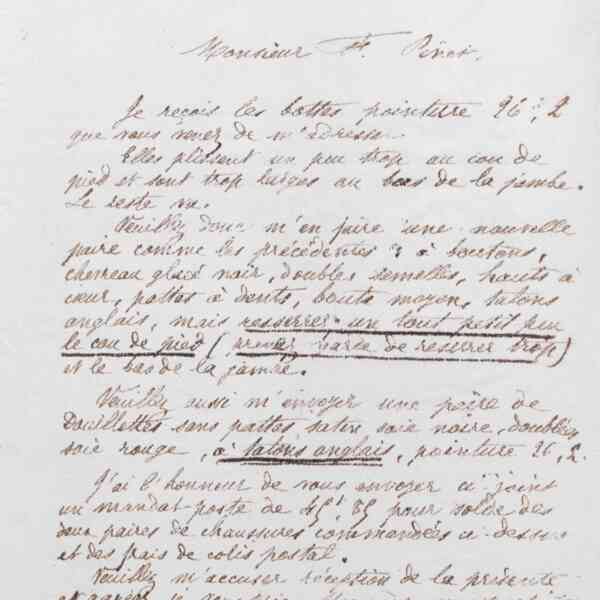 Monsieur F. Pinet.
Je reçois les bottes pointure 36, 2
que vous venez de m'adresser.
Elles plissent un peu trop au cou de
pied et sont trop larges au bas de la jambe.
Le reste va.
Veuillez donc m'en faire une nouvelle
paire comme les précédentes à boutons,
chevreau glacé noir, doubles semelles, hauts à
cœur, pattes à dents, bouts moyen, talons
anglais, mais resserrer un tout petit peu
le cou de pied (prenez garde de resserrer trop)
et le bas de la jambe.
Veuillez aussi m'envoyer une paire de
Douillettes sans pattes satin soie noire, doublées
soie rouge, à talons anglais, pointure 36, 2.
J'ai l'honneur de vous envoyer ci joint
un mandat-poste de 45f 85 pour solde des
deux paires de chaussures commandées ci dessus
et des frais de colis postal.
Veuillez m'accuser réception de la présente
et agréer